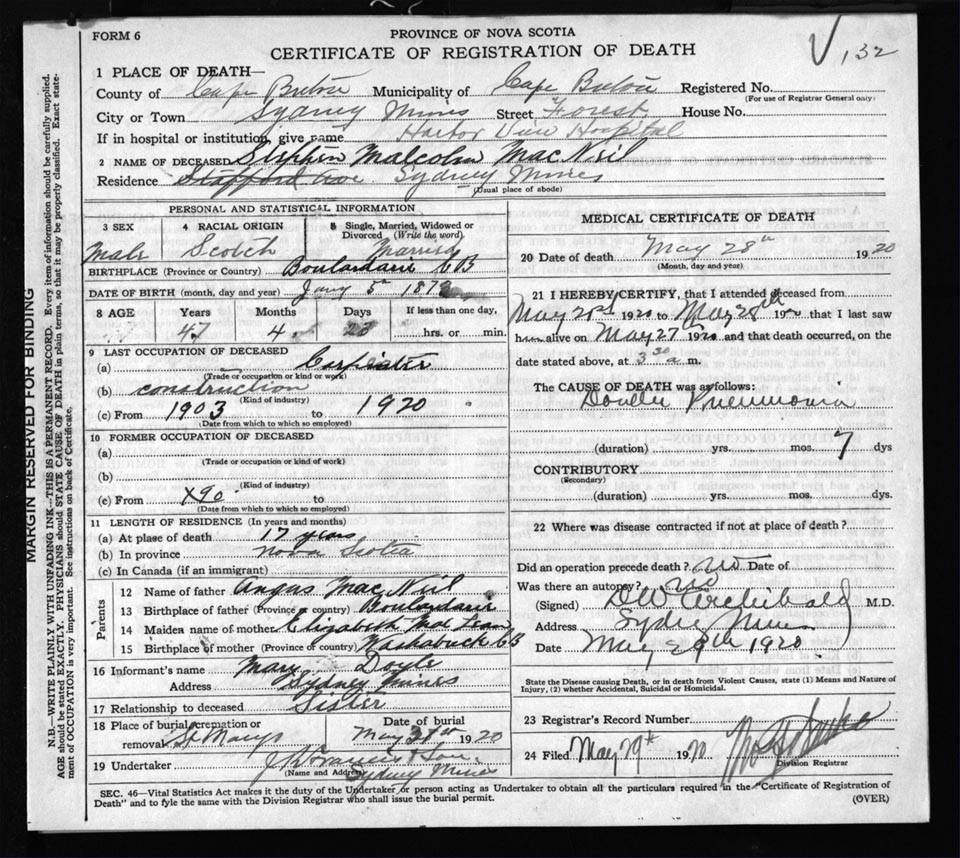 FORM 6
PROVINCE OF NOVA SCOTIA
CERTIFICATE OF REGISTRATION OF DEATH
132
1 PLACE OF DEATH—
County of Cape Breton Municipality of Cape Breton Registered No.
(For use of Registrar General only)
City or Town Sydney Mines Street Forest House No.
If in hospital or institution, give name Harbor View Hospital
2 NAME OF DECEASED Stephen Malcolm MacNeil
Residence Stafford Ave. Sydney Mines
(Usual place of abode)
PERSONAL AND STATISTICAL INFORMATION
3 SEX 4 RACIAL ORIGIN 5 Single, Married, Widowed or Divorced (Write the word).
Male Scotch Married
BIRTHPLACE (Province or Country) Boulardarie CB
DATE OF BIRTH (month, day and year) Jany 5th 1873
8 AGE Years Months Days If less than one day,
47 4 23 hrs. or min.
9 LAST OCCUPATION OF DECEASED
(a) Carpenter
(Trade or occupation or kind or work)
(b) construction
(Kind of industry)
(c) From 1903 to 1920
(Date from which to which so employed)
10 FORMER OCCUPATION OF DECEASED
(a)
(Trade or occupation or kind of work)
(b)
(Kind of industry)
(c) From X90 to
(Date from which to which so employed)
11 LENGTH OF RESIDENCE (In years and months)
(a) At place of death 17 years
(b) In province Nova Scotia
(c) In Canada (if an immigrant)
Parents
12 Name of father Angus MacNeil
13 Birthplace of father (Province or country) Boulardarie
14 Maiden name of mother Elizabeth MacLean
15 Birthplace of mother (Province of country) Washabuck CB
16 Informant's name Mary Doyle
Address Sydney Mines
17 Relationship to deceased Sister
18 Place of burial, cremation or removal St Marys
Date of burial May 31st 1920
19 Undertaker
(Name and Address) Sydney Mines
MEDICAL CERTIFICATE OF DEATH
20 Date of death May 28th 1920
(Month, day and year)
21 I HEREBY CERTIFY, that I attended deceased from
May 21st 1920 to May 28th 1920 that I last saw
him alive on May 27th 1920 and that death occurred, on the
date stated above, at 3 30 a.m.
The CAUSE OF DEATH was as follows:
Double Pneumonia
(duration) yrs. mos. 7 dys
CONTRIBUTORY
(Secondary)
(duration) yrs. mos. dys.
22 Where was disease contracted if not at place of death?
Did an operation precede death? no Date of
Was there an autopsy? no
(Signed) DW Archibald M.D.
Address Sydney Mines
Date May 29th 1920
State the Disease causing Death, or in death from Violent Causes, state (1) Means and Nature of Injury, (2) whether Accidental, Suicidal or Homicidal.
23 Registrar's Record Number
24 Filed May 29th 1920
Division Registrar
SEC. 46—Vital Statistics Act makes it the duty of the Undertaker or person acting as Undertaker to obtain all the particulars required in the "Certificate of Registration of
Death" and to fyle the same with the Division Registrar who shall issue the burial permit.
(OVER)
MARGIN RESERVED FOR BINDING
N.B.—WRITE PLAINLY WITH UNFADING INK—THIS IS A PERMANENT RECORD. Every item of information should be carefully supplied.
AGE should be stated EXACTLY. PHYSICIANS should STATE CAUSE OF DEATH in plain terms, so that it may be properly classified. Exact statement of OCCUPATION is very important. See instructions on back of Certificate.